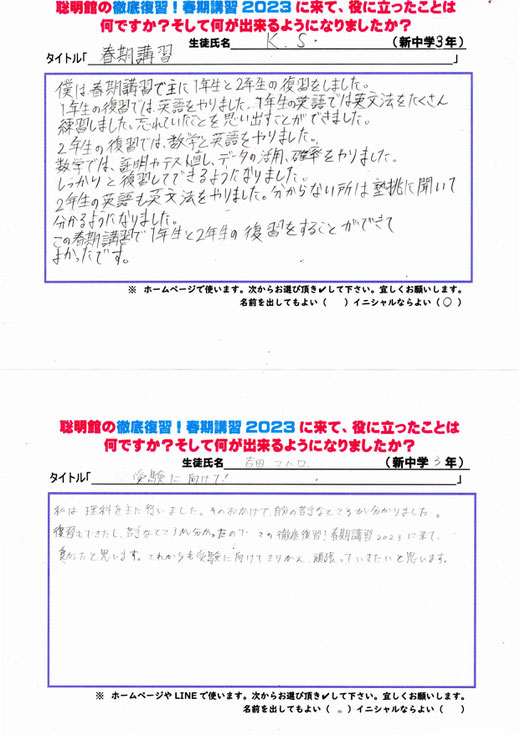 聡明館の徹底復習！春期講習2023に来て、役に立ったことは
何ですか？そして何が出来るようになりましたか？
生徒氏名 K.S. （新中学3年）
タイトル「春期講習」
僕は春期講習で主に1年生と2年生の復習をしました。
1年生の復習では英語をやりました。1年生の英語では英文法をたくさん
練習しました。忘れていたことを思い出すことができました。
2年生の復習では、数学と英語をやりました。
数学では、証明やテスト直し、データの活用、確率をやりました。
しっかりと復習してできるようになりました。
2年生の英語も英文法をやりました。分からない所は塾挑に聞いて
分かるようになりました。
この春期講習で1年生と2年生の復習をすることができて
よかったです。
※ ホームページで使います。次からお選び頂き✔して下さい。宜しくお願いします。
名前を出してもよい（ ）イニシャルならよい（○）
聡明館の徹底復習！春期講習2023に来て、役に立ったことは
何ですか？そして何が出来るようになりましたか？
生徒氏名 （新中学3年）
タイトル「受験に向けて！」
私は理科を主に習いました。そのおかげで、自分の苦手なところが分かりました。
復習もできたし、苦手なところが分かったので、この徹底復習！春期講習2023に来て、
良かったと思います。これからも受験に向けて 頑張っていきたいと思います。
※ ホームページやLINEで使います。次からお選び頂き✔して下さい。宜しくお願いします。
名前を出してもよい（ 。）イニシャルならよい（ ）